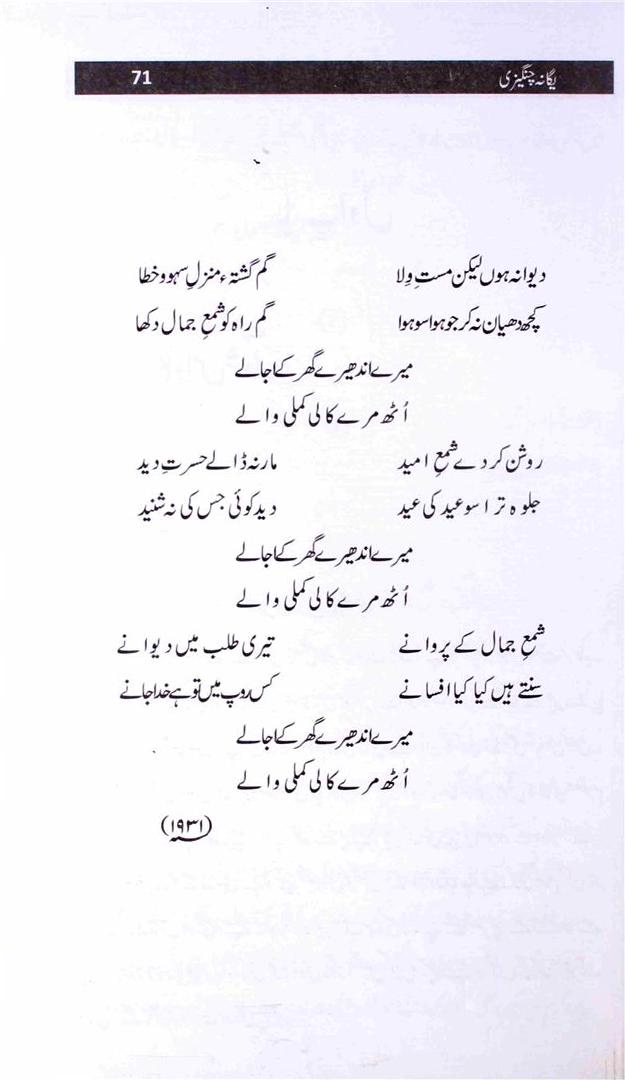 یگانہ چنگیزی 71
دیوانہ ہوں لیکن مستِ وِلا گم گشتہء منزلِ سہو و خطا
کچھ دھیان نہ کر جو ہوا سو ہوا گم راہ کو شمعِ جمال دکھا
میرے اندھیرے گھر کے اجالے
اُٹھ مرے کالی کملی والے
روشن کر دے شمعِ امید مار نہ ڈالے حسرتِ دید
جلوہ ترا سو عید کی عید دید کوئی جس کی نہ شنید
میرے اندھیرے گھر کے اجالے
اُٹھ مرے کالی کملی والے
شمعِ جمال کے پروانے تیری طلب میں دیوانے
سنتے ہیں کیا کیا افسانے کس روپ میں تو ہے خدا جانے
میرے اندھیرے گھر کے اجالے
اُٹھ مرے کالی کملی والے
(۱۹۳۱)